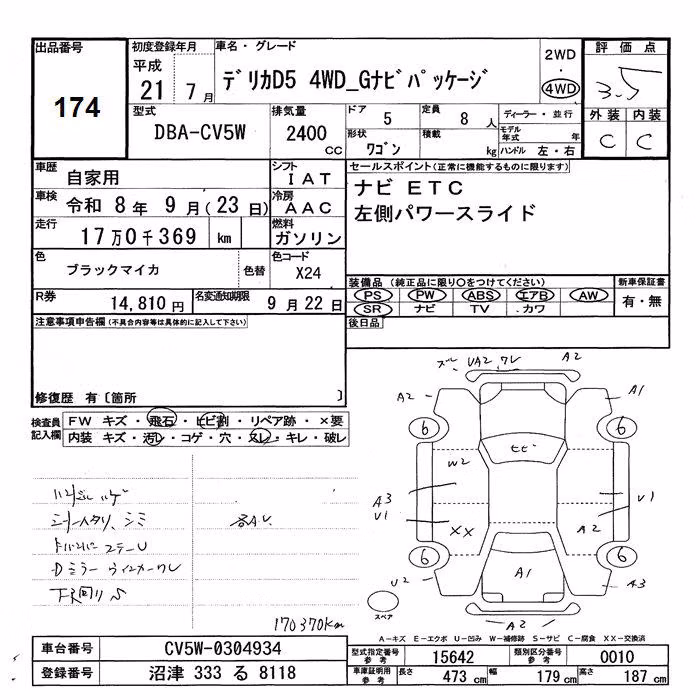 出品番号
174
初度登録年月
平成
21 7月
車名・グレード
デリカD5 4WD_Gナビパッケージ
2WD
・
4WD
評価点
3.5
外装 内装
C C
型式
DBA-CV5W
排気量
2400
CC
ドア
5
定員
8 人
ディーラー・並行
モデル年式 年
形状
ワゴン
積載
kg
ハンドル 左・右
車歴
自家用
シフト
IAT
車検
令和 8年 9月(23日)
冷房
AAC
走行
17万0千369 km
燃料
ガソリン
色
ブラックマイカ
色替
色コード
X24
R券
14,810円
名変通知期限
9月22日
セールスポイント(正常に機能するものに限ります)
ナビ ETC
左側パワースライド
装備品 (純正品に限り○をつけてください)
PS PW ABS エアB AW
SR ナビ TV カワ
新車保証書
有・無
後日品
注意事項申告欄(不具合内容等は具体的に記入して下さい)
修復歴 有〔箇所 〕
検査員記入欄
FW キズ・飛石・ヒビ割・リペア跡・×要
内装 キズ・汚レ・コゲ・穴・スレ・キレ・破レ
ハンドルハゲ
シートヘタリ、シミ
各A.U
Dミラー ウインカーワレ
下回りS
170370km
ズレ UA2 ワレ A2
A2 A1
6 6
ヒビ
W2
A3
U1
U1
A2
XX
6 6
A1
U2 A3
A2
スペア
A-キズ E-エクボ U-凹み W-補修跡 S-サビ C-腐食 XX-交換済
車台番号
CV5W-0304934
登録番号
沼津 333 る 8118
型式指定番号
参考
15642
類別区分番号
参考
0010
車庫証明用
参考
長さ
473 cm
幅
179 cm
高さ
187 cm